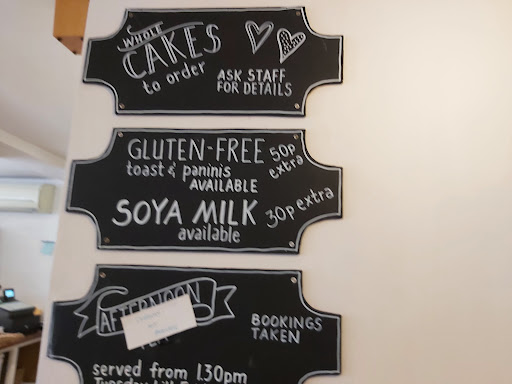 WHOLE
CAKES
to order
ASK STAFF
FOR DETAILS
GLUTEN-FREE 50p
toast & paninis extra
AVAILABLE
SOYA MILK 30p extra
available
AFTERNOON
BOOKINGS
TAKEN
served from 1.30pm